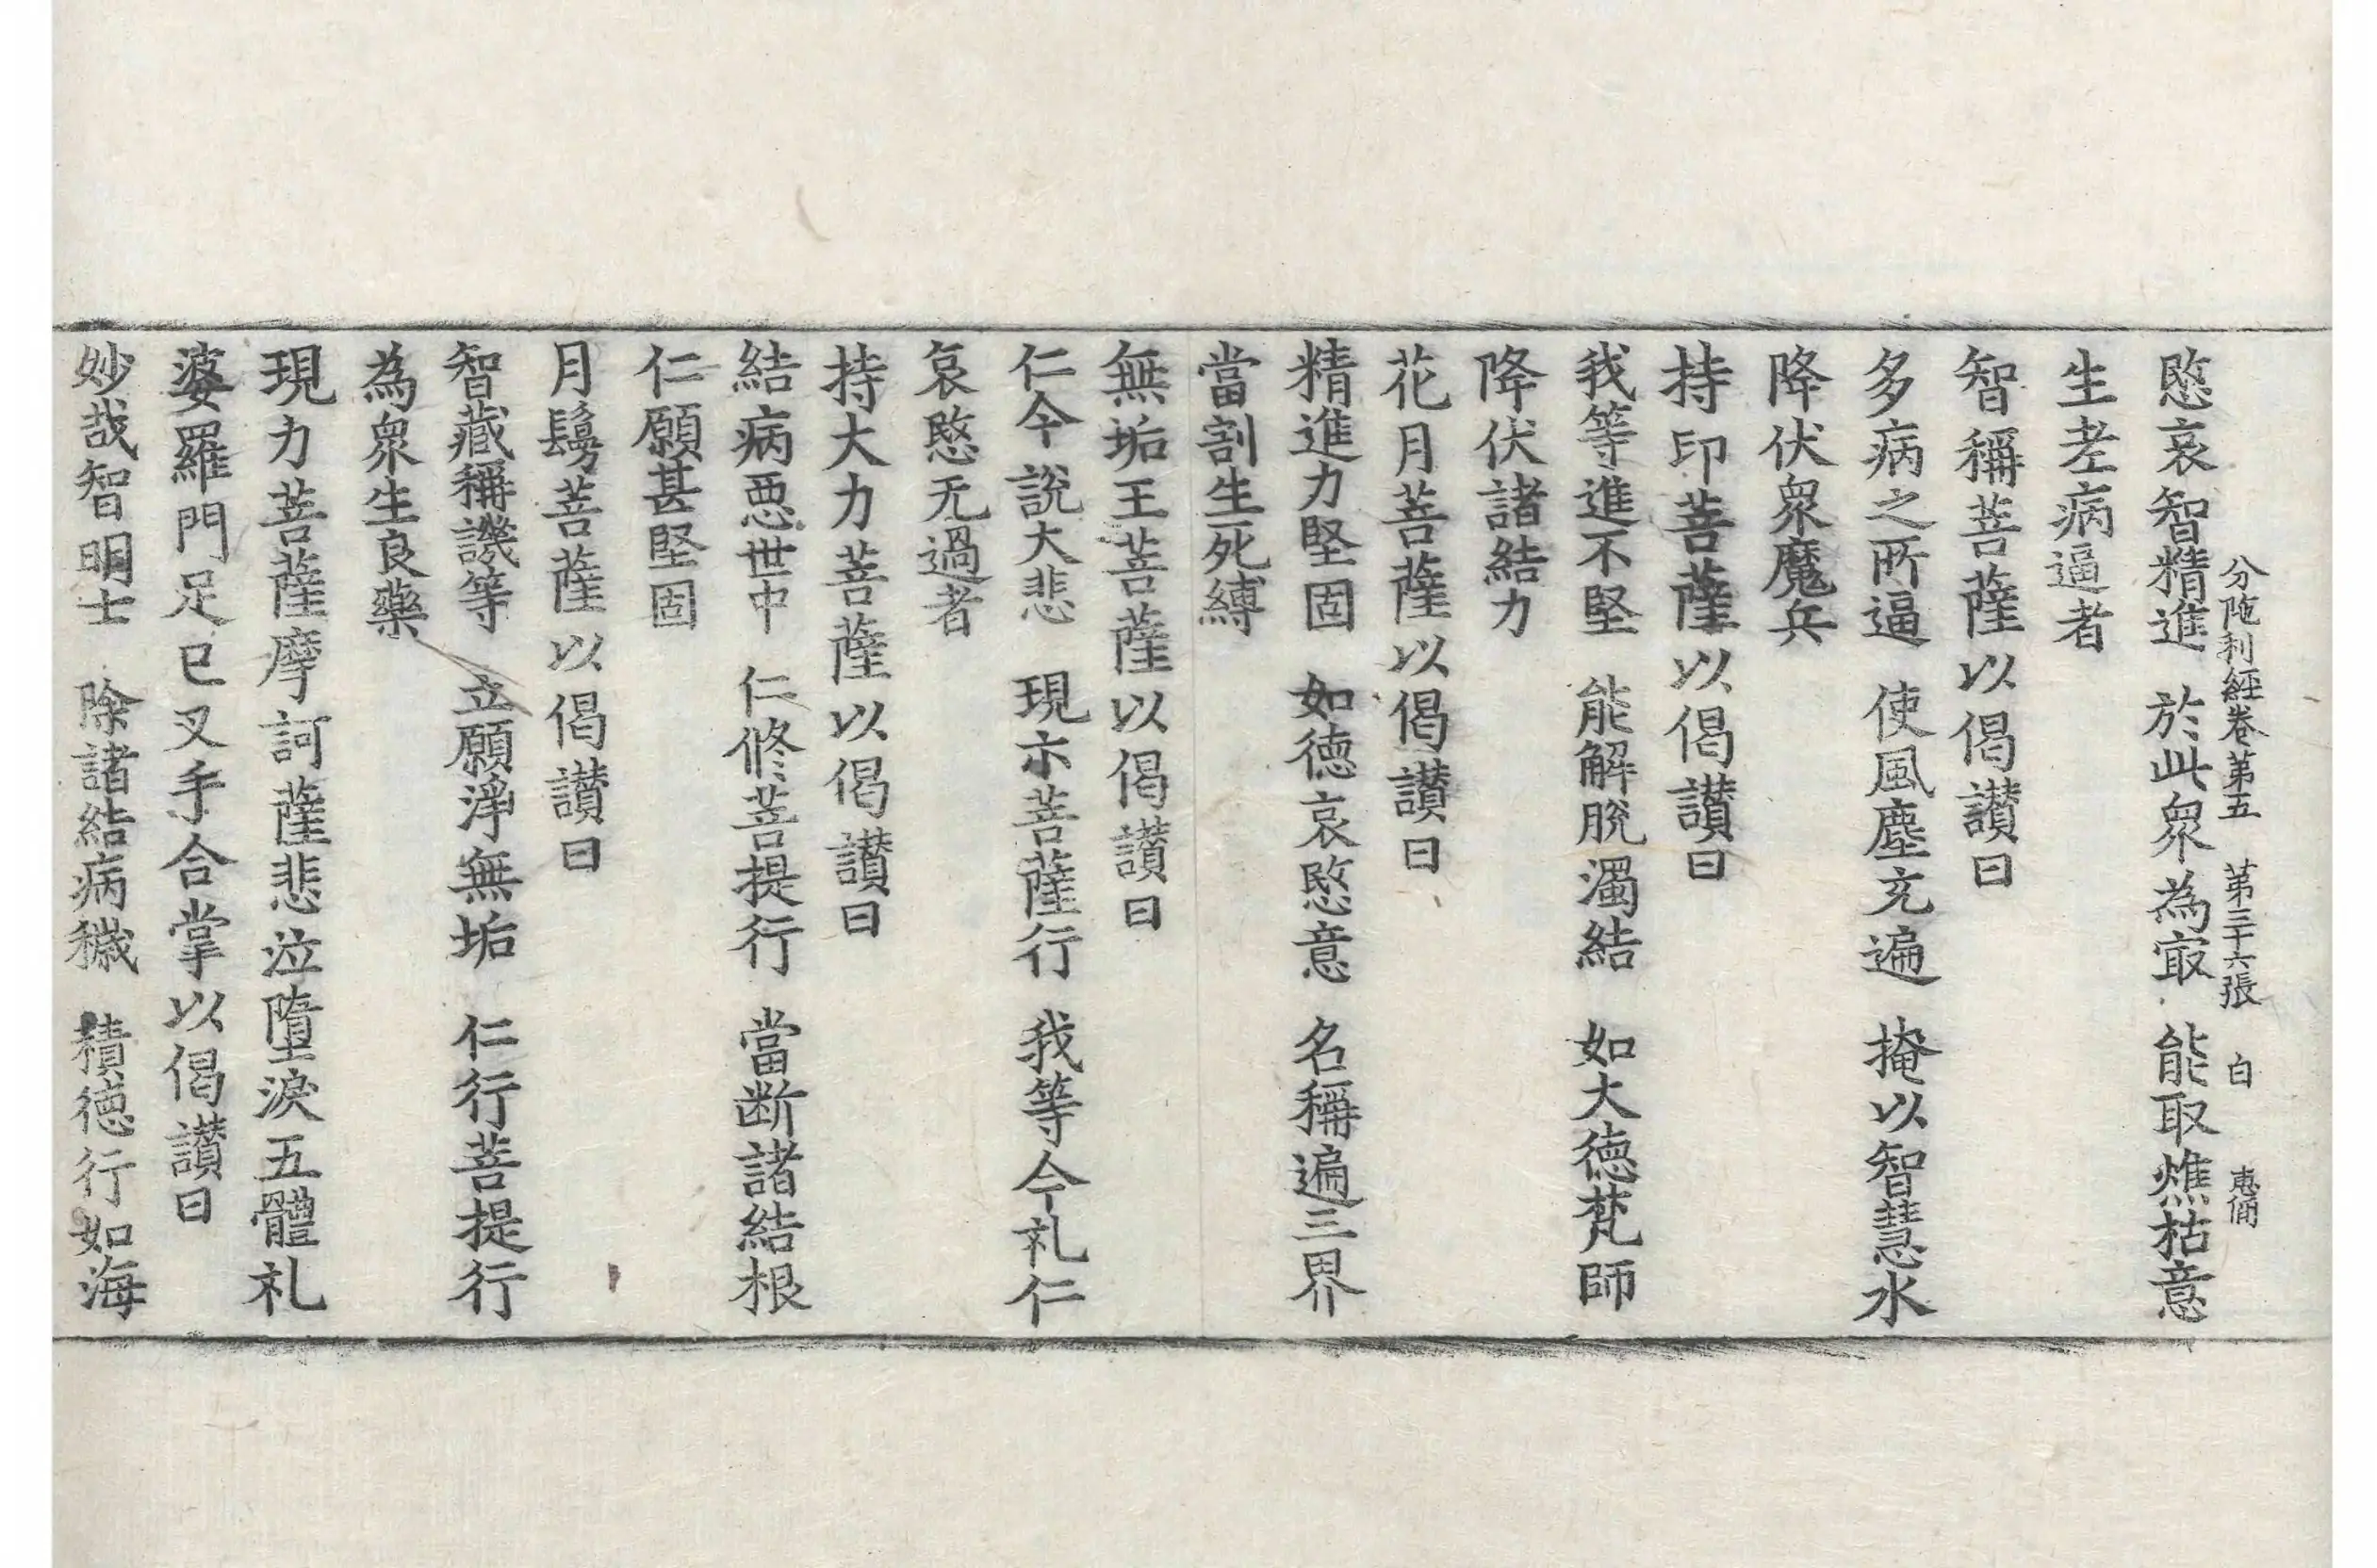 分陁利經卷第五　第三十六張　白　惠僴
愍哀智精進　於此衆為㝡　能取燋枯意
生老病逼者
智稱菩薩以偈讃曰
多病之所逼　使風塵充遍　掩以智慧水
降伏衆魔兵
持印菩薩以偈讃曰
我等進不堅　能解脫濁結　如大德梵師
降伏諸結力
花月菩薩以偈讃曰
精進力堅固　如德哀愍意　名稱遍三界
當割生死縛
無垢王菩薩以偈讃曰
仁今說大悲　現示菩薩行　我等今礼仁
哀愍无過者
持大力菩薩以偈讃曰
結病悪世中　仁修菩提行　當断諸結根
仁願甚堅固
月鬘菩薩以偈讃曰
智藏稱譏等　立願淨無垢　仁行菩提行
為衆生良藥
現力菩薩摩訶薩悲泣墮淚五體礼
婆羅門足已叉手合掌以偈讃曰
妙哉智明士　除諸結病穢　積德行如海